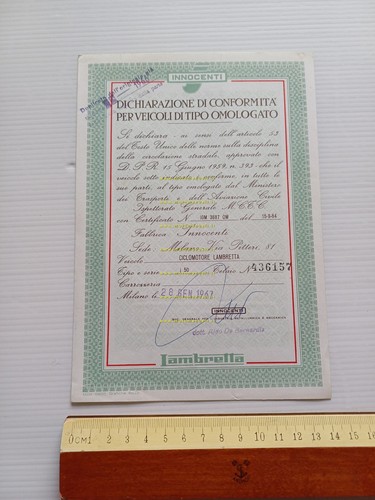 INNOCENTI
DICHIARAZIONE DI CONFORMITA'
PER VEICOLI DI TIPO OMOLOGATO
Si dichiara - ai sensi dell'articolo 53
del Testo Unico delle norme sulla disciplina
della circolazione stradale, approvato con
D. P. R. 15 Giugno 1959, n. 393 - che il
veicolo sotto indicato è conforme, in tutte le
sue parti, al tipo omologato dal Ministero
dei Trasporti e dell'Aviazione Civile
Ispettorato Generale M.C.T.C.
con Certificato N. IOM 3887 OM del 15-5-64
Fabbrica Innocenti
Sede Milano - Via Pitteri, 81
Veicolo CICLOMOTORE LAMBRETTA
Tipo e serie 50 Telaio N. 436157
Carrozzeria
Milano li 28 GEN 1967
INNOCENTI
Lambretta
0 CM 1 2 3 4 5 6 7 8 9 10 11 12 13 14 15 16